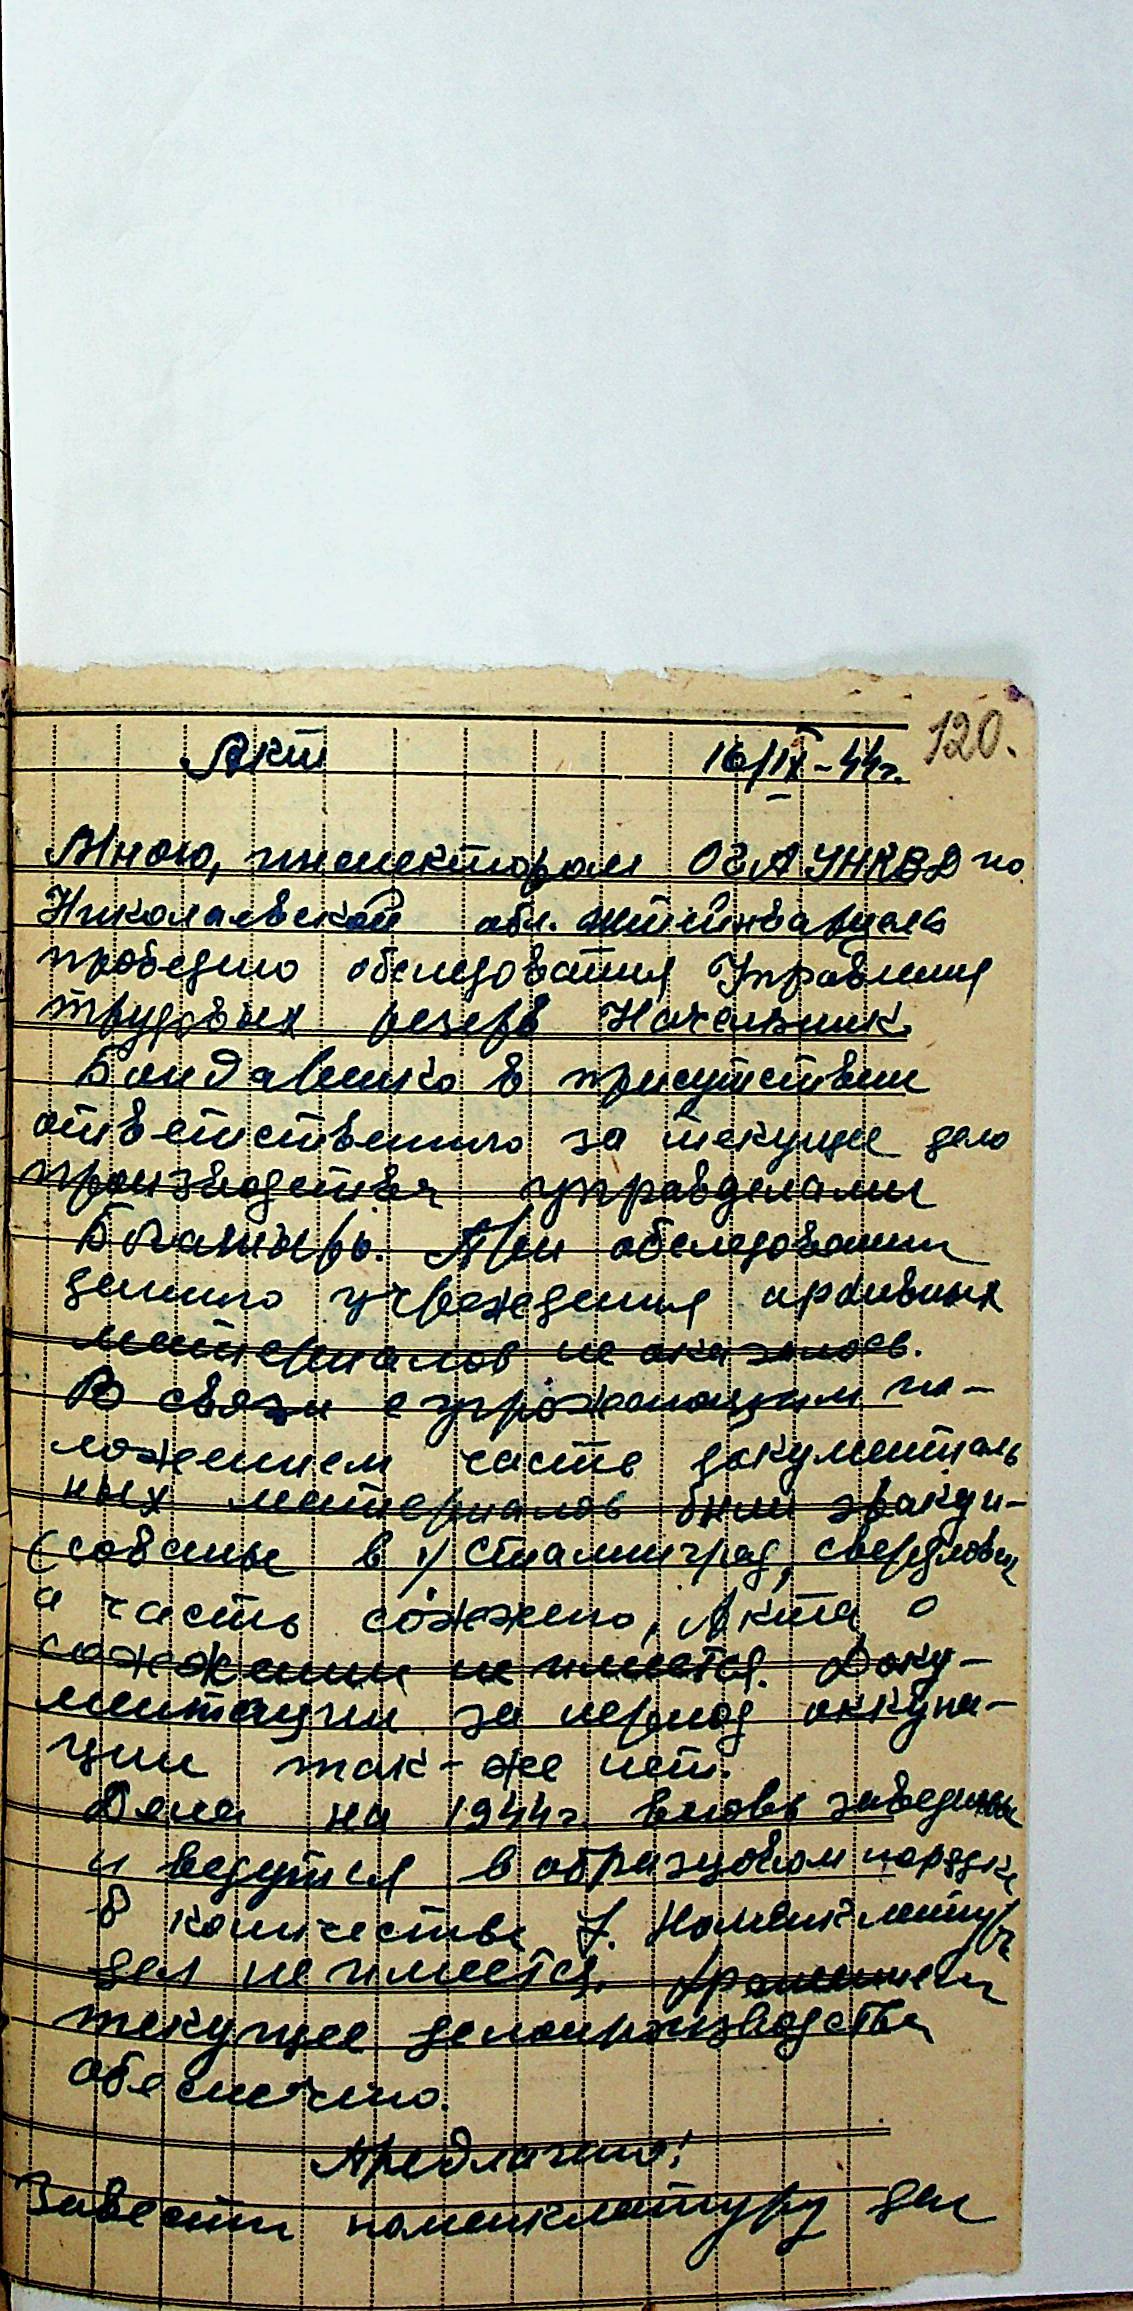 120.
Акт 16/IX-44г.
Мною, инспектором ОГА УНКВД по
Николаевской обл.
проведено обследования Управления
трудовых резерв Начальник
Бондаренко в присутствии
ответственного за текущее дело
производства управделами
При обследовании
данного учреждения архивных
материалов не оказалось.
В связи с угрожающим по-
ложением часть документаль
ных материалов были эваку и-
рованы в г. Сталинград, Свердловск
а часть сожжено, Акта о
сожжении не имеется. Доку-
ментации за период оккупа-
ции так-же нет.
Дела на 1944г. вновь заведены
и ведутся в образцовом порядке
в количестве 7. Номенклатура
дел не имеется. Хранением
текущее делопроизводства
обеспечено.
Предлагаю:
Завести номенклатуру дел